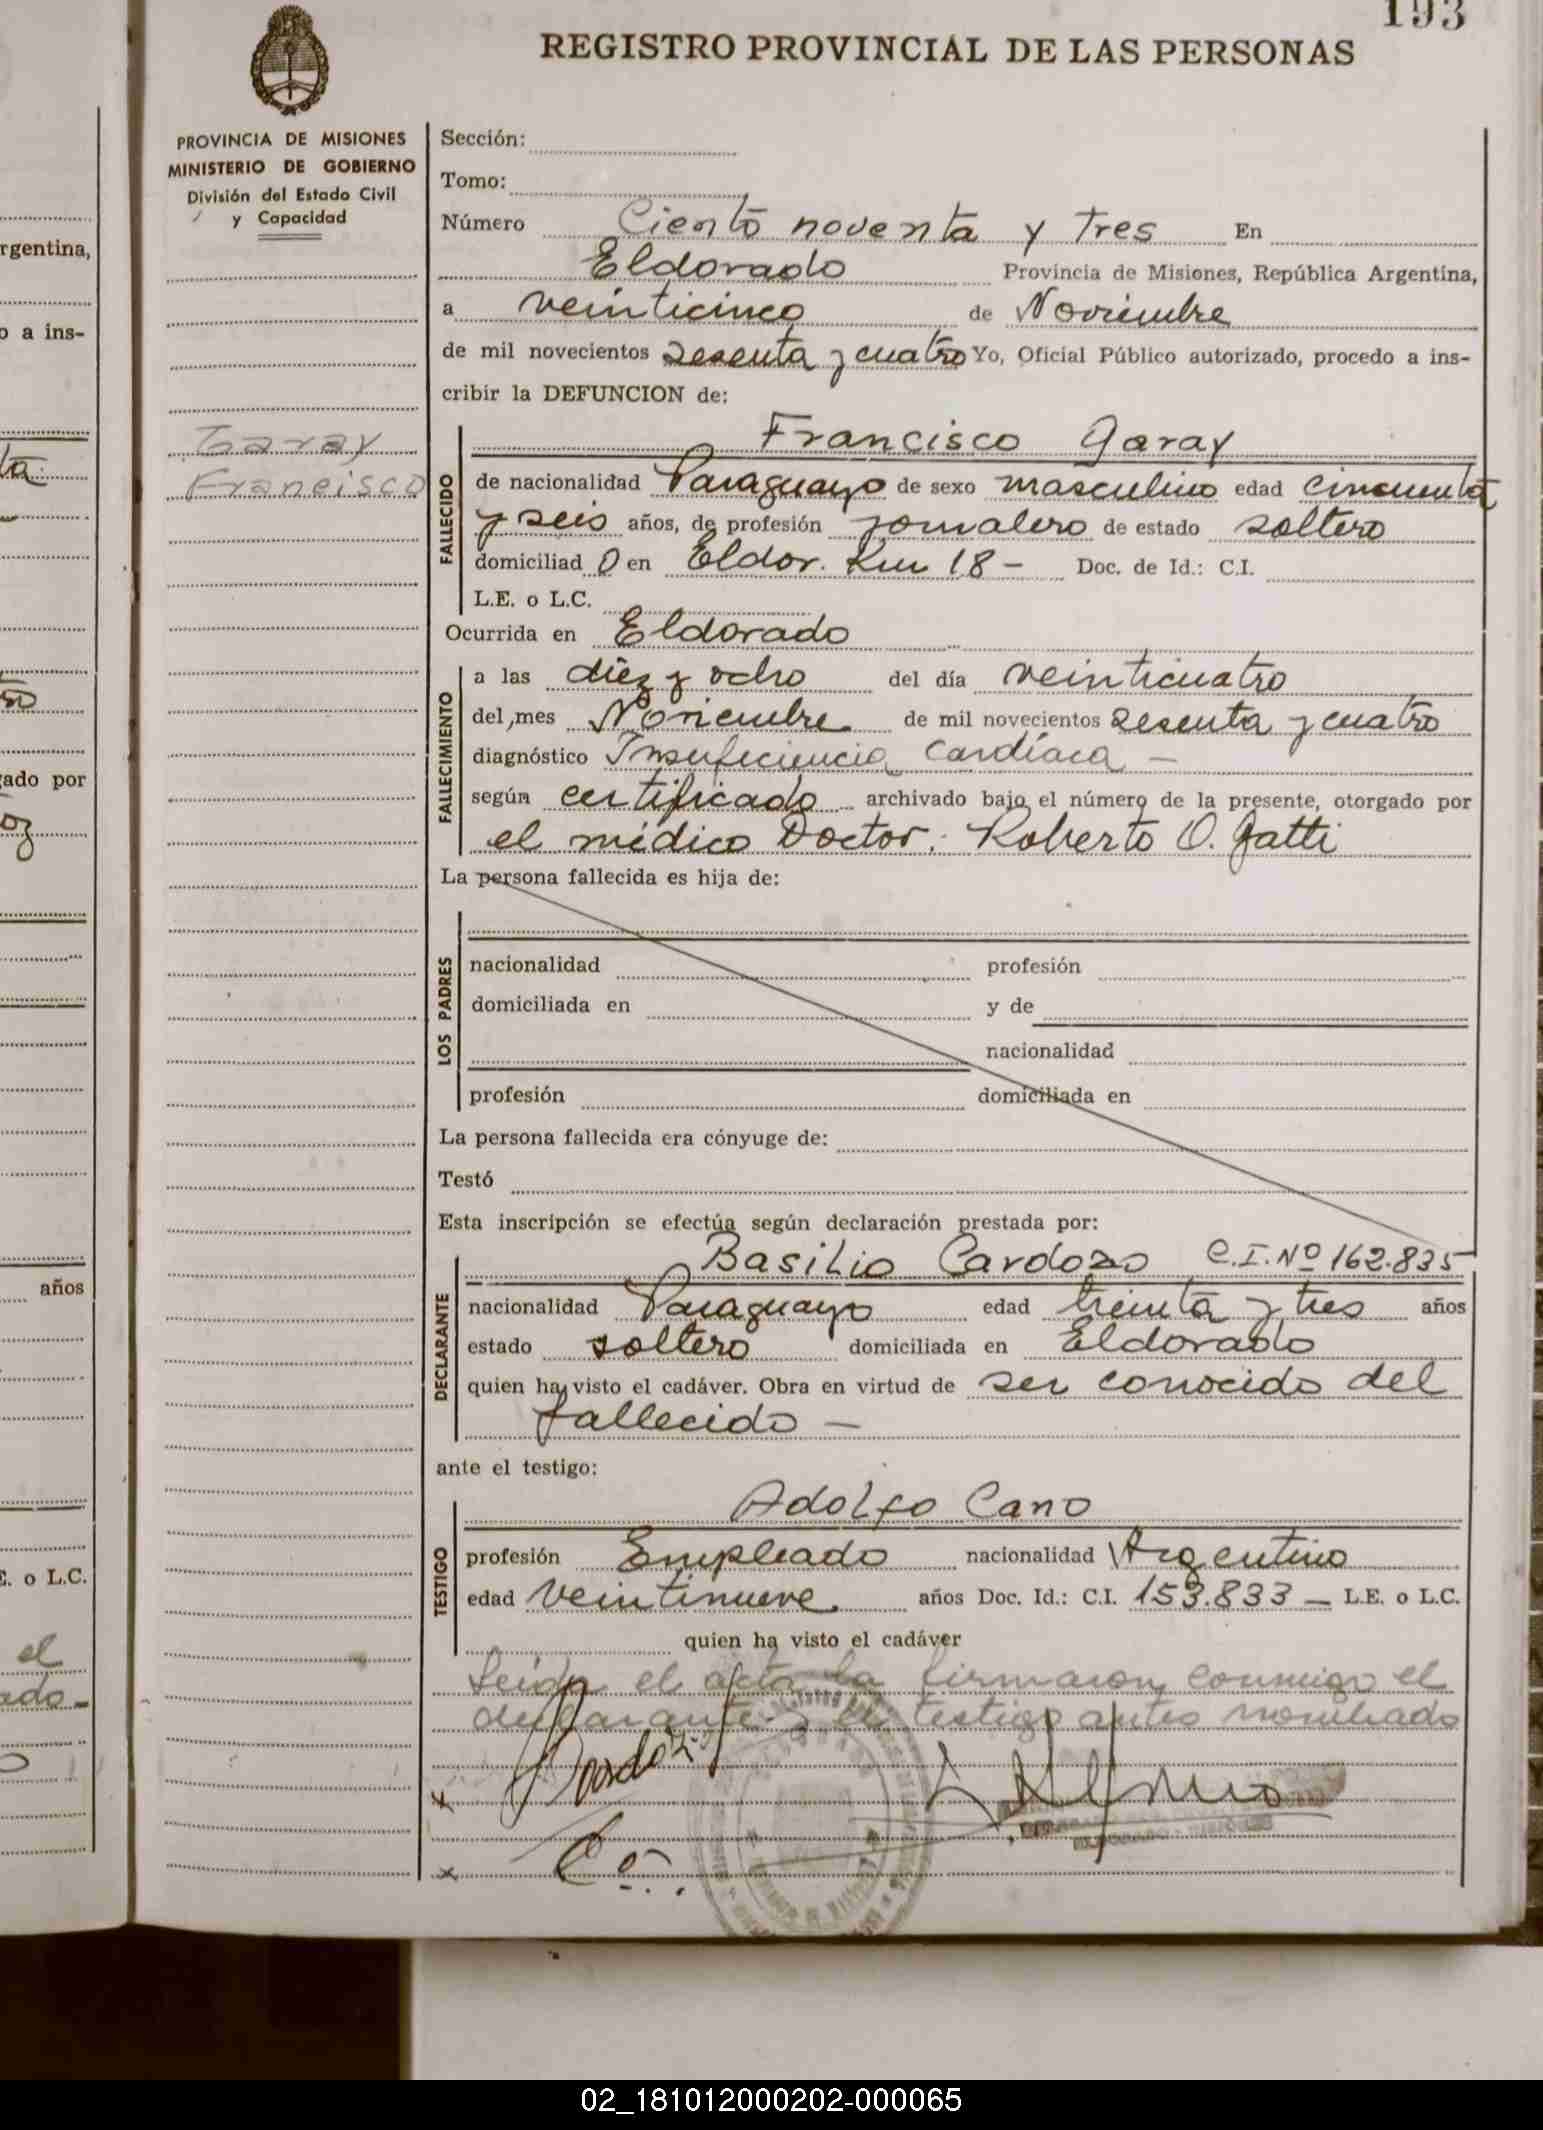 193
REGISTRO PROVINCIAL DE LAS PERSONAS
PROVINCIA DE MISIONES
MINISTERIO DE GOBIERNO
División del Estado Civil
y Capacidad
Garay
Francisco
Sección:
Tomo:
Número Ciento noventa y tres En
Eldorado Provincia de Misiones, República Argentina,
a veinticinco de Noviembre
de mil novecientos sesenta y cuatro Yo, Oficial Público autorizado, procedo a ins-
cribir la DEFUNCION de:
FALLECIDO
Francisco Garay
de nacionalidad Paraguayo de sexo masculino edad cincuenta
y seis años, de profesión jornalero de estado soltero
domiciliad o en Eldor. Km 18 - Doc. de Id.: C.I.
L.E. o L.C.
Ocurrida en Eldorado
FALLECIMIENTO
a las diez y ocho del día veinticuatro
del mes Noviembre de mil novecientos sesenta y cuatro
diagnóstico Insuficiencia Cardíaca -
según certificado archivado bajo el número de la presente, otorgado por
el médico Doctor: Roberto O. Gatti
La persona fallecida es hija de:
LOS PADRES
nacionalidad profesión
domiciliada en y de
nacionalidad
profesión domiciliada en
La persona fallecida era cónyuge de:
Testó
Esta inscripción se efectúa según declaración prestada por:
DECLARANTE
Basilio Cardozo C.I. Nº 162.835
nacionalidad Paraguayo edad treinta y tres años
estado soltero domiciliada en Eldorado
quien ha visto el cadáver. Obra en virtud de ser conocido del
fallecido -
ante el testigo:
TESTIGO
Adolfo Cano
profesión Empleado nacionalidad Argentino
edad veintinueve años Doc. Id.: C.I. 153.833 - L.E. o L.C.
quien ha visto el cadáver
Leída el acta la firmaron conmigo el
declarante y el testigo antes nombrado
rgentina,
o a ins-
ado por
años
E. o L.C.
el
02_181012000202-000065